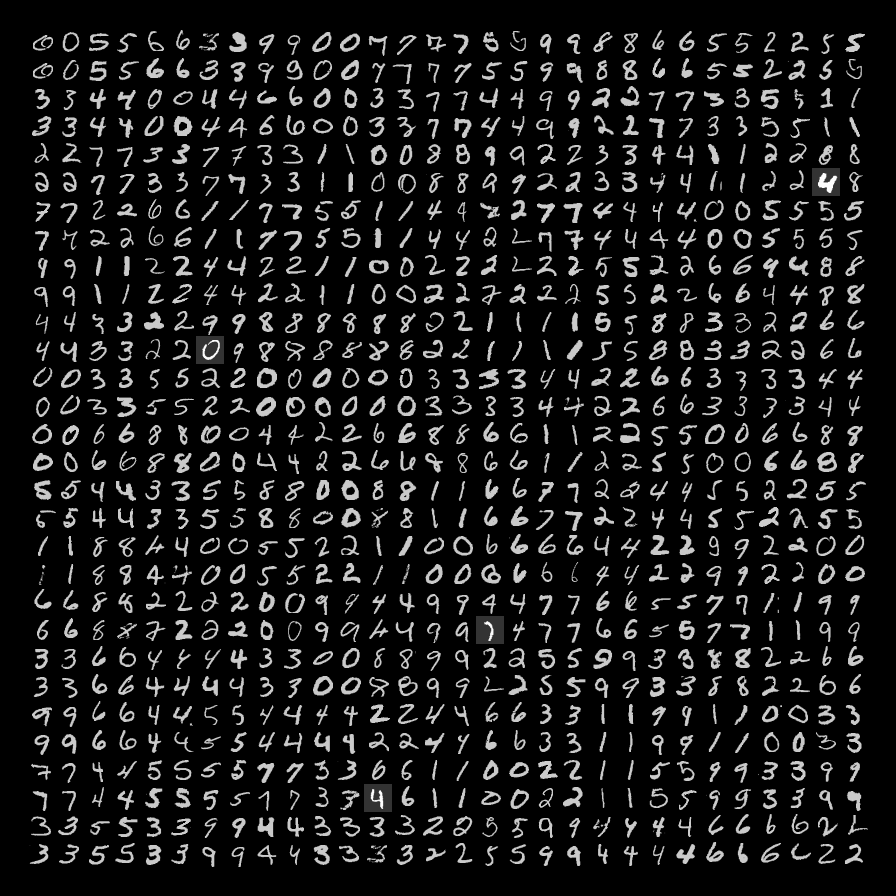 0 0 5 5 6 6 3 3 9 9 0 0 7 7 7 7 5 5 9 9 8 8 6 6 5 5 2 2 5 5
0 0 5 5 6 6 3 3 9 9 0 0 7 7 7 7 5 5 9 9 8 8 6 6 5 5 2 2 5 5
3 3 4 4 0 0 4 4 6 6 0 0 3 3 7 7 4 4 9 9 2 2 7 7 3 3 5 5 1 1
3 3 4 4 0 0 4 4 6 6 0 0 3 3 7 7 4 4 9 9 2 2 7 7 3 3 5 5 1 1
2 2 7 7 3 3 7 7 3 3 1 1 0 0 8 8 9 9 2 2 3 3 4 4 1 1 2 2 8 8
2 2 7 7 3 3 7 7 3 3 1 1 0 0 8 8 9 9 2 2 3 3 4 4 1 1 2 2 4 8
7 7 2 2 6 6 1 1 7 7 5 5 1 1 4 4 2 2 7 7 4 4 4 4 0 0 5 5 5 5
7 7 2 2 6 6 1 1 7 7 5 5 1 1 4 4 2 2 7 7 4 4 4 4 0 0 5 5 5 5
9 9 1 1 2 2 4 4 2 2 1 1 0 0 2 2 2 2 2 2 5 5 2 2 6 6 4 4 8 8
9 9 1 1 2 2 4 4 2 2 1 1 0 0 2 2 2 2 2 2 5 5 2 2 6 6 4 4 8 8
4 4 3 3 2 2 9 9 8 8 8 8 8 8 2 2 1 1 1 1 5 5 8 8 3 3 2 2 6 6
4 4 3 3 2 2 0 9 8 8 8 8 8 8 2 2 1 1 1 1 5 5 8 8 3 3 2 2 6 6
0 0 3 3 5 5 2 2 0 0 0 0 0 0 3 3 3 3 4 4 2 2 6 6 3 3 3 3 4 4
0 0 3 3 5 5 2 2 0 0 0 0 0 0 3 3 3 3 4 4 2 2 6 6 3 3 3 3 4 4
0 0 6 6 8 8 0 0 4 4 2 2 6 6 8 8 6 6 1 1 2 2 5 5 0 0 6 6 8 8
0 0 6 6 8 8 0 0 4 4 2 2 6 6 8 8 6 6 1 1 2 2 5 5 0 0 6 6 8 8
5 5 4 4 3 3 5 5 8 8 0 0 8 8 1 1 6 6 7 7 2 2 4 4 5 5 2 2 5 5
5 5 4 4 3 3 5 5 8 8 0 0 8 8 1 1 6 6 7 7 2 2 4 4 5 5 2 2 5 5
1 1 8 8 4 4 0 0 5 5 2 2 1 1 0 0 6 6 6 6 4 4 2 2 9 9 2 2 0 0
1 1 8 8 4 4 0 0 5 5 2 2 1 1 0 0 6 6 6 6 4 4 2 2 9 9 2 2 0 0
6 6 8 8 2 2 2 2 0 0 9 9 4 4 9 9 4 4 7 7 6 6 5 5 7 7 1 1 9 9
6 6 8 8 2 2 2 2 0 0 9 9 4 4 9 9 7 4 7 7 6 6 5 5 7 7 1 1 9 9
3 3 6 6 4 4 4 4 3 3 0 0 8 8 9 9 2 2 5 5 9 9 3 3 8 8 2 2 6 6
3 3 6 6 4 4 4 4 3 3 0 0 8 8 9 9 2 2 5 5 9 9 3 3 8 8 2 2 6 6
9 9 6 6 4 4 5 5 4 4 4 4 2 2 4 4 6 6 3 3 1 1 9 9 1 1 0 0 3 3
9 9 6 6 4 4 5 5 4 4 4 4 2 2 4 4 6 6 3 3 1 1 9 9 1 1 0 0 3 3
7 7 4 4 5 5 5 5 7 7 3 3 6 6 1 1 0 0 2 2 1 1 5 5 9 9 3 3 9 9
7 7 4 4 5 5 5 5 7 7 3 3 4 6 1 1 0 0 2 2 1 1 5 5 9 9 3 3 9 9
3 3 5 5 3 3 9 9 4 4 3 3 3 3 2 2 5 5 9 9 4 4 4 4 6 6 6 6 2 2
3 3 5 5 3 3 9 9 4 4 3 3 3 3 2 2 5 5 9 9 4 4 4 4 6 6 6 6 2 2